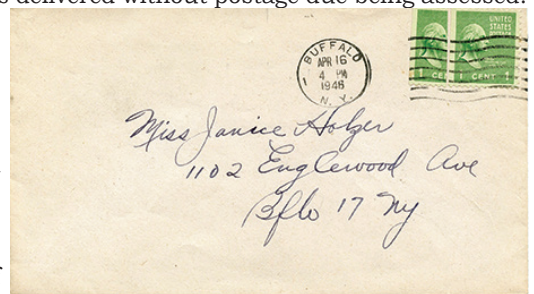 s delivered without postage due being assessed.
BUFFALO
APR 16
4 PM
1946
N.Y.
1
UNITED
STATES
1 CE
1 CENT 1
Miss Janice Holzer
1102 Englewood Ave
Bflo 17 Ny